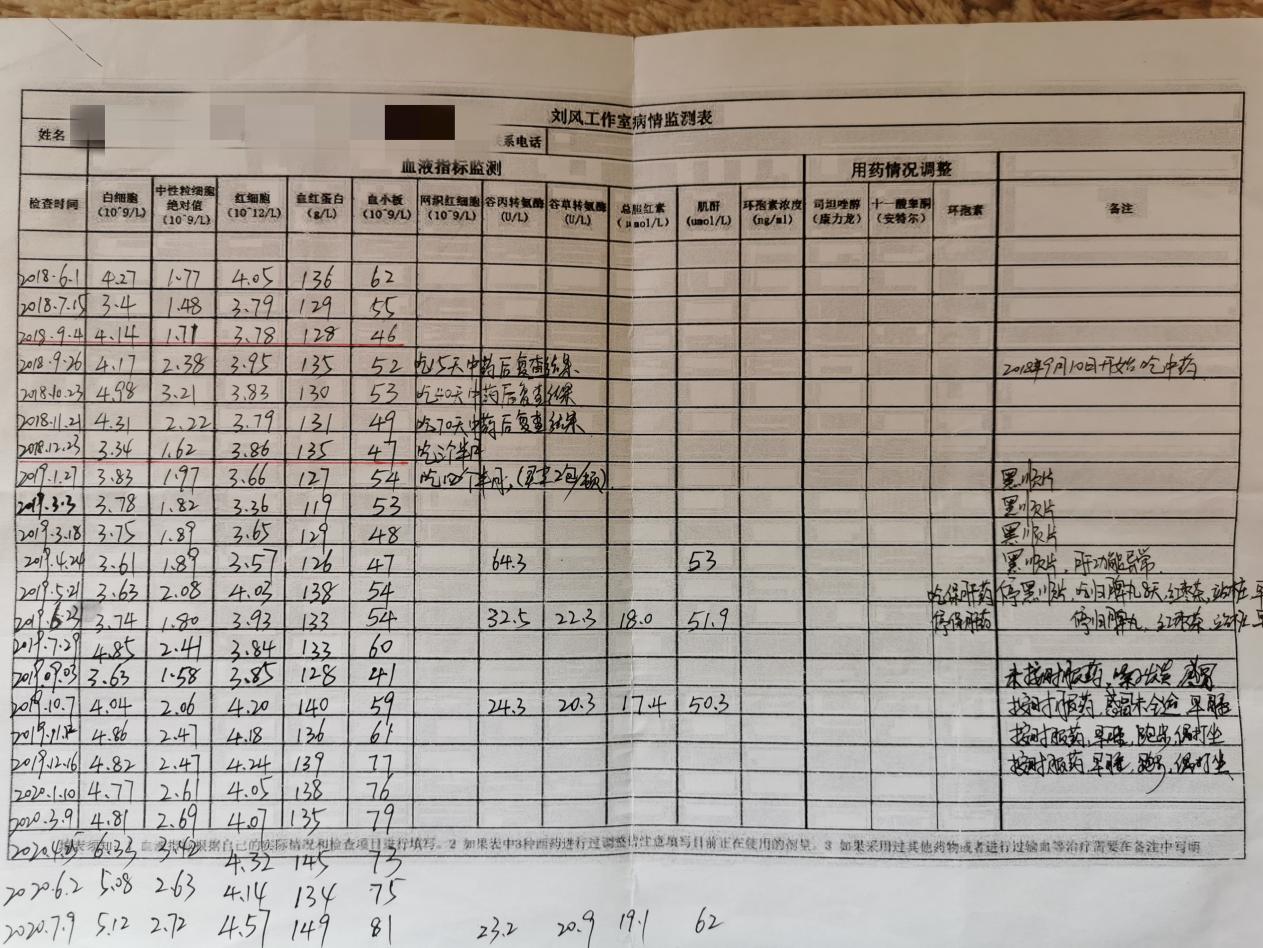 刘风工作室病情监测表
姓名 系电话
血液指标监测 用药情况调整
检查时间 白细胞 (10^9/L) 中性粒细胞绝对值 (10^9/L) 红细胞 (10^12/L) 血红蛋白 (g/L) 血小板 (10^9/L) 网织红细胞 (10^9/L) 谷丙转氨酶 (U/L) 谷草转氨酶 (U/L) 总胆红素 (μmol/L) 肌酐 (umol/L) 环孢素浓度 (ng/ml) 司坦唑醇 (康力龙) 十一酸睾酮 (安特尔) 环孢素 备注
2018.6.1 4.27 1.77 4.05 136 62
2018.7.15 3.4 1.48 3.79 129 55
2018.9.4 4.14 1.71 3.78 128 46
2018.9.26 4.17 2.38 3.95 135 52 吃15天中药后复查结果 2018年9月10日开始吃中药
2018.10.23 4.98 3.21 3.83 130 53 吃40天中药后复查结果
2018.11.21 4.31 2.22 3.79 131 49 吃70天中药后复查结果
2018.12.23 3.34 1.62 3.86 135 47 吃三个半月
2019.1.27 3.83 1.97 3.66 127 54 黑顺片
2019.3.3 3.78 1.82 3.36 119 53 黑顺片
2019.3.18 3.75 1.89 3.65 129 48 黑顺片
2019.4.24 3.61 1.89 3.57 126 47 64.3 53 黑顺片，肝功能异常
2019.5.21 3.63 2.08 4.03 138 54 吃保肝药 停黑顺片，吃归脾丸8天，红枣茶，站桩
2019.6.23 3.74 1.80 3.93 133 54 32.5 22.3 18.0 51.9 停保肝药 停归脾丸，红枣茶，站桩
2019.7.29 4.85 2.41 3.84 133 60
2019.09.03 3.63 1.58 3.85 128 41 未按时服药，感冒
2019.10.7 4.04 2.06 4.20 140 59 24.3 20.3 17.4 50.3 按时服药，感冒未全愈 早睡
2019.11.12 4.86 2.47 4.18 136 61 按时服药，早睡，跑步，偶打坐
2019.12.16 4.82 2.47 4.24 139 77 按时服药，早睡，跑步，偶打坐
2020.1.10 4.77 2.61 4.05 138 76
2020.3.9 4.81 2.69 4.07 135 79
根据自己的实际情况和检查项目进行填写。2 如果表中3种西药进行过调整请注意填写目前正在使用的剂量。3 如果采用过其他药物或者进行过输血等治疗需要在备注中写明
2020.4.25 6.33 3.42 4.32 145 73
2020.6.2 5.08 2.63 4.14 134 75
2020.7.9 5.12 2.72 4.57 149 81 23.2 20.9 19.1 62